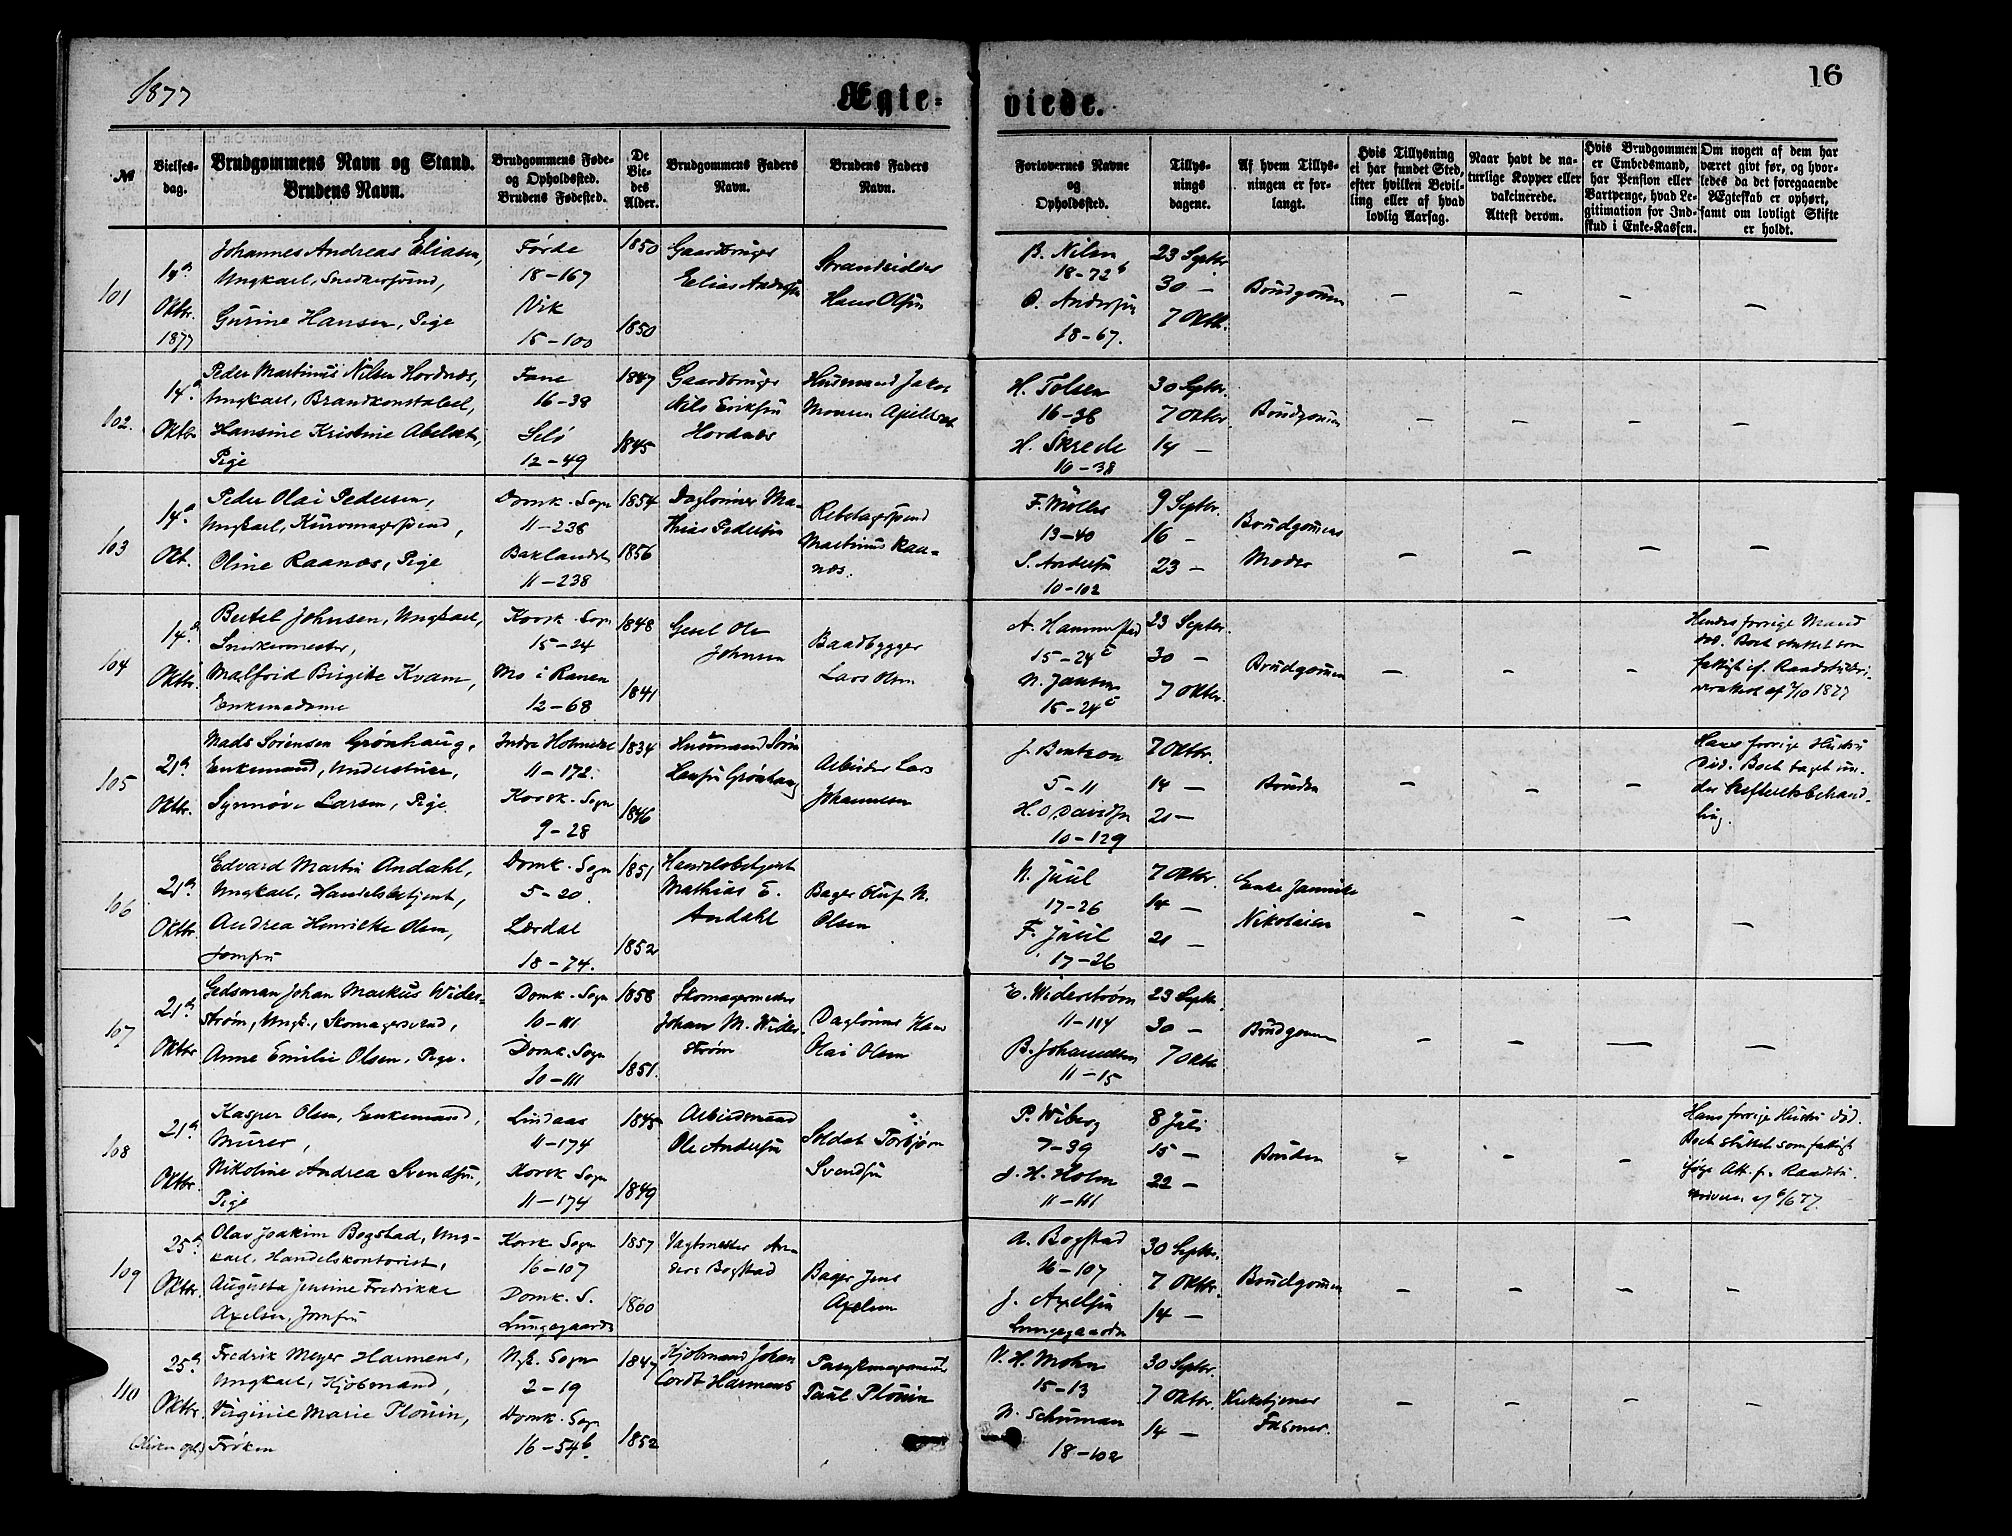 1877
Ægte-
viede.
16
No
Vielses-
dag.
Brudgommens Navn og Stand.
Brudens Navn.
Brudgommens Føde-
og Opholdssted.
Brudens Fødested.
De
Vie-
des
Alder.
Brudgommens Faders
Navn.
Brudens Faders
Navn.
Forlovernes Navne
og
Opholdssted.
Tillys-
nings
dagene.
Af hvem Tillys-
ningen er for-
langt.
Hvis Tillysning
ei har fundet Sted,
efter hvilken Bevil-
ling eller af hvad
lovlig Aarsag.
Naar havt de na-
turlige Kopper eller
vakcinerede.
Attest derom.
Hvis Brudgommen
er Embedsmand,
har Pension eller
Vartpenge, hvad Le-
gitimation for Ind-
skud i Enke-Kassen.
Om nogen af dem har
været givt før, og hvor-
ledes da det foregaaende
Ægteskab er ophørt,
samt om lovligt Skifte
er holdt.
101
14de
Oktbr.
1877
Johannes Andreas Eliasen,
Ungkarl, Snedkersvend,
Gurine Hansen, Pige
Førde
18-167
Vik
15-100
1850
1850
Gaardbruger
Elias Andersen
Strandsidder
Hans Olsen
B. Nilsen
18-72b
O. Andersen
18-67.
23 Septbr
30 -
7 Oktb.
Brudgommen
102.
14de
Oktbr
Peder Martinus Nilsen Hordnæs,
Ungkarl, Brandkonstabel,
Hansine Kristine Abelset,
Pige
Fane
16-38
Selö
12-49
1847
1845
Gaardbruger
Nils Eriksen
Hordnæs
Husmand Jakob
Monsen
H. Tolsen
16-38
H. Skrede
16-38
30 Septbr.
7 Oktbr.
14 -
Brudgommen
103
14de
Okt.
Peder Olai Pedersen,
Ungkarl,
Oline Raanæs, Pige
Domk. Sogn
11-238
Baklandet
11-238
1854
1856
Daglønner Ma-
thias Pedersen
Rebslagersvend
Martinus Raa-
næs.
F. Møller
13-40
S. Andersen
10-102
9 Septbr.
16 -
23 -
Brudgommens
Moder
104
14de
Oktbr.
Bertel Johnsen, Ungkarl,
Snedkermester,
Malfrid Birgitte Kvam,
Enkemadame
Korsk. Sogn
15-24
Mo i Ranen
12-68
1848
1841
Ole
Johnsen
Baadbygger
Lars Olsen
A. Hammerstad
15-24c
N. Jansen
15-24c
23 Septbr.
30 -
7 Oktbr.
Brudgommen
Hendes forrige Mand
død. Boet sluttet som
fattigt if. Raadstueskri-
verattest af 7/10 1877
105
21de
Oktbr.
Mads Sörensen Grønhaug,
Enkemand,
Synnøve Larsen, Pige
Indre Holmedal
11-172.
Korsk. Sogn
9-28
1834
1846
Husmand Sören
Larsen Grønhaug
Arbeider Lars
Johannesen
J. Bentzon
5-11
H. O. Davidsen
10-129
7 Oktbr.
14 -
21 -
Bruden
Hans forrige Hustru
død. Boet taget un-
der Skifteretsbehand-
ling.
106
21de
Oktbr
Edvard Martin Andahl,
Ungkarl, Handelsbetjent,
Andrea Henrikke Olsen,
Jomfru
Domk. Sogn
5-20.
Lærdal
18-74.
1851
1852
Handelsbetjent
Mathias E.
Andahl
Bager Oluf N.
Olsen
N. Juul
17-26
F. Juul
17-26
7 Oktbr.
14 -
21 -
Enke Jannike
Nikolaisen
107
21de
Oktbr
Gedsman Johan Markus Wider-
strøm, Ungk., Skomagersvend,
Anne Emilie Olsen, Pige.
Domk. Sogn
10-111
Domk. Sogn
10-111
1858
1851.
Skomagermester
Johan M. Wider-
strøm
Daglönner Hans
Olai Olsen
E. Widerstrøm
11-114
B. Johannesen
11-15
23 Septbr.
30 -
7 Oktbr
Brudgommen
108
21de
Oktbr.
Kasper Olsen, Enkemand,
Murer,
Nikoline Andrea Svendsen,
Pige
Lindaas
11-174
Korsk Sogn
11-174
1845
1849
Arbeidsmand
Ole Andersen
Soldat Torbjørn
Svendsen
P. Wiberg
7-39
J. H. Holm
11-111
8 Juli
15 -
22 -
Bruden
Hans forrige Hustru död.
Boet sluttet som fattigt
ifølge Att. fr. Raadstu-
skriveren af 6/6 77.
109
25de
Oktbr.
Olav Joakim Bogstad, Ung-
karl, Handelskontorist,
Augusta Jensine Fredrikke
Axelsen, Jomfru
Korsk Sogn
16-107
Domk. S.
Lungegaarden
1857
1860
Vagtmester An-
ders Bogstad
Bager Jens
Axelsen
A. Bogstad
16-107
J. Axelsen
Lungegaarden
30 Septbr.
7 Oktbr.
14 -
Brudgommen
110
25de
Oktbr.
Fredrik Meyer Harmens,
Ungkarl, Kjøbmand,
Virginie Marie Plouin,
Frøken
Nyk. Sogn
2-19
Domk. Sogn
16-54b.
1847
1852
Kjøbmand Johan
Cordt Harmens
Paul Plouin
V. H. Mohn
15-13
N. Schuman
18-102
30 Septbr.
7 Oktbr.
14 -
Kirketjener
Fasmer.